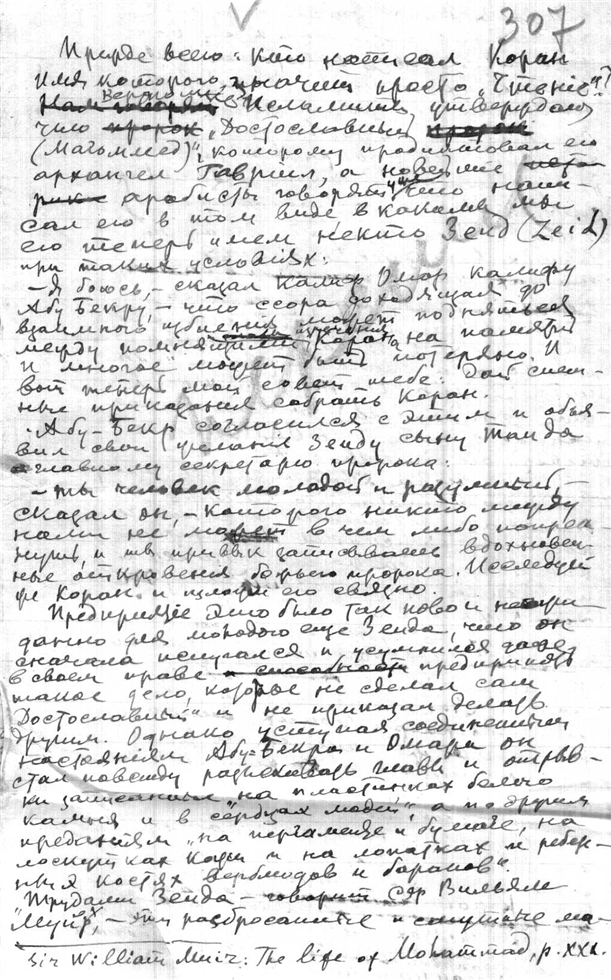 307
Прежде всего: кто написал Коран
имя которого значит просто „Чтенiе"?
Верующие Исламиты утверждают
что пророк „Достославный
(Магоммед)", которому продиктовал его
архангел Гавриил, а новейшие
арабисты говорят, что напи-
сал его в том виде в каком мы
его теперь имем некто Зеид (Zeid)
при таких условиях:
— Я боюсь, — сказал Омар калифу
Абу Бекру, — что ссора доходящая до
взаимного избиения может подняться
между помнящими Коран на память
и многое может быть потеряно. И
вот теперь мой совет тебе: Дай спеш-
ные приказания собрать Коран.
Абу-Бекр согласился с этим и объя-
вил свои желания Зеиду сыну Таида
главному секретарю пророка:
— Ты человек молодой и разумный, —
сказал он, — которого никто между
нами не может в чем либо попрек-
нуть, и ты привык записывать вдохновен-
ные откровения божьего пророка. Исследуй
же Коран и изложи его связно.
Предприятие это было так ново и неожи-
данно для молодого еще Зеида, что он
сначала испугался и усумнился даже
в своем праве предпринять
такое дело, которое не сделал сам
„Достославный" и не приказал делать
другим. Однако уступая соединенным
настояниям Абу-Бекра и Омара он
стал повсюду разыскивать главы и отрыв-
ки записанные „на пластинках белого
камня и в сердцах людей", а по другим
преданиям „на пергаменте и бумаге, на
лоскутках кожи и на лопатках и ребер-
ных костях верблюдов и баранов".
Трудами Зеида — говорит сэр Вильям
Муйр, — эти разбросанные и смутные ма-
Sir William Muir: The life of Mohammad, p. XXI.